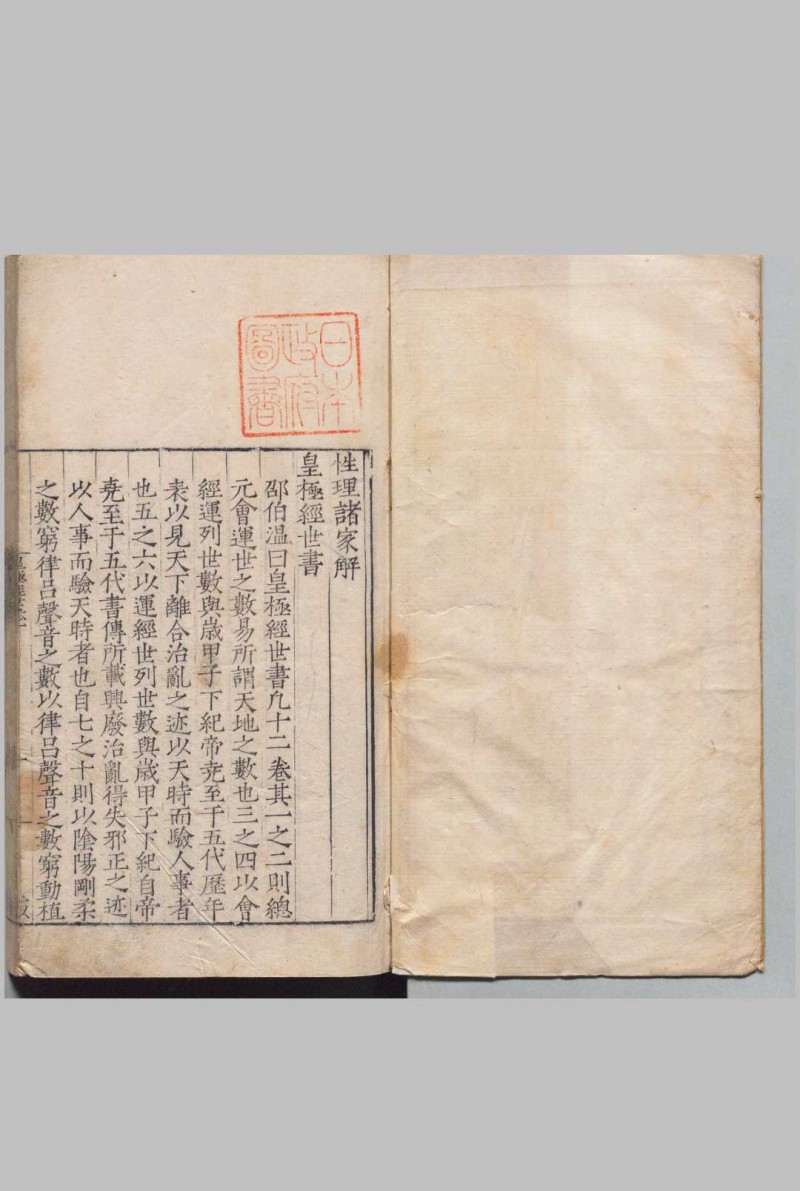 日本
政府
圖書
性理諸家解
皇極經世書
邵伯溫曰皇極經世書凡十二卷其一之二則總
元會運世之數易所謂天地之數也三之四以會
經運列世數與歲甲子下紀帝尭至于五代歷年
表以見天下離合治亂之迹以天時而驗人事者
也五之六以運經世列世數與歲甲子下紀自帝
尭至于五代書傳所載興廢治亂得失邪正之迹
以人事而驗天時者也自七之十則以陰陽剛柔
之數窮律呂聲音之數以律呂聲音之數窮動植